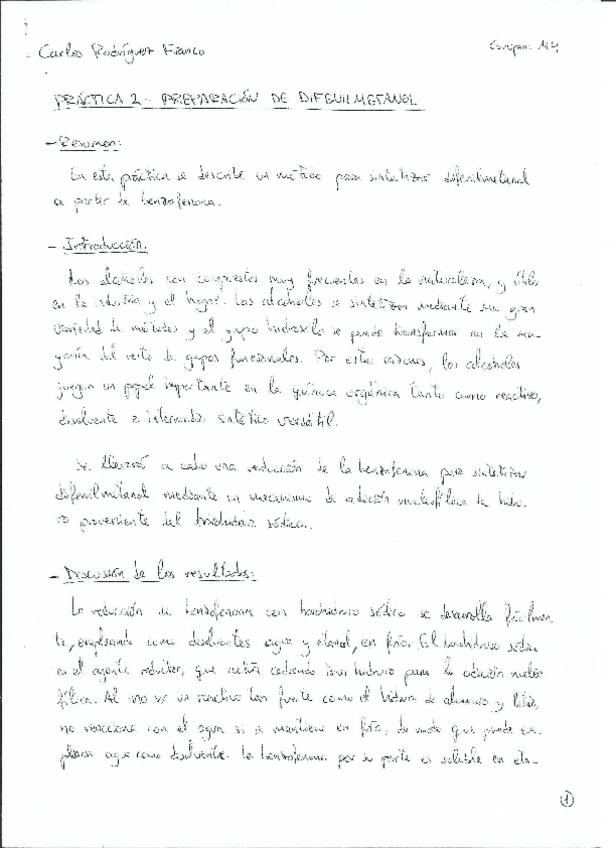 Carlos Rodríguez Franco
PRÁCTICA 2 - PREPARACIÓN DE DIFENILMETANOL
- Resumen:
En esta práctica se describe un método para sintetizar difenilmetanol
a partir de benzofenona.
- Introducción.
Los alcoholes son compuestos muy frecuentes en la naturaleza, y útiles
en la industria y el hogar. Los alcoholes se sintetizan mediante una gran
variedad de métodos y el grupo hidroxilo se puede transformar en la ma-
yoría del resto de grupos funcionales. Por estas razones, los alcoholes
juegan un papel importante en la química orgánica tanto como reactivo,
disolvente e intermedio sintético versátil.
Se llevará a cabo una reducción de la benzofenona para sintetizar
difenilmetanol mediante un mecanismo de adición nucleofílica de hidru-
ro proveniente del borohidruro sódico.
- Discusión de los resultados:
La reducción de benzofenona con borohidruro sódico se desarrolla fácilmen
te, empleando como disolventes agua y etanol, en frío. El borohidruro sódico
es el agente reductor, que actúa cediendo iones hidruro para la adición nucleo
fílica. Al no ser un reactivo tan fuerte como el hidruro de aluminio y litio,
no reacciona con el agua si se mantiene en frío, de modo que puede em-
plearse agua como disolvente. La benzofenona por su parte es soluble en eta-
1